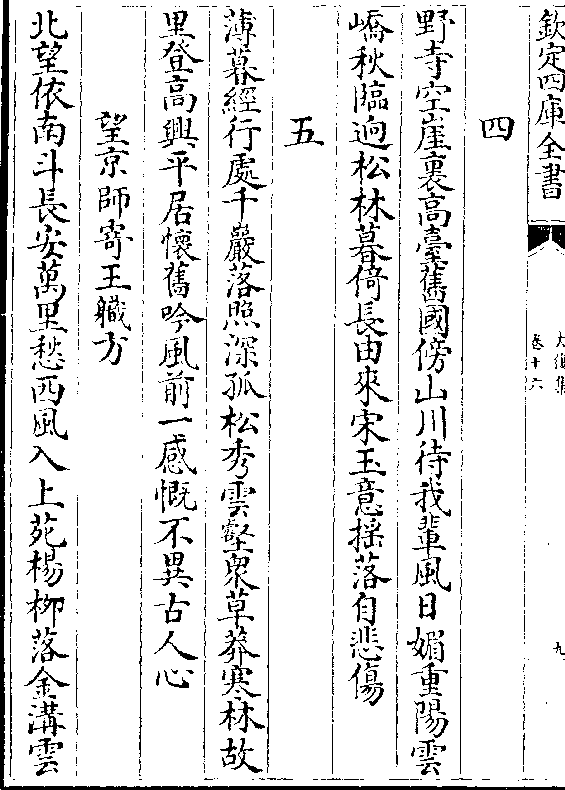 欽定四庫全書
大復集
卷十六
九
四
野寺空崖裏高臺舊國傍山川待我輩風日媚重陽雲
嶠秋臨迥松林暮倚長由來宋玉意揺落自悲傷
五
薄暮經行處千巖落照深孤松秀雲壑衆草莽寒林故
里登高興平居懷舊吟風前一感慨不異古人心
望京師寄王職方
北望依南斗長安萬里愁西風入上苑楊柳落金溝雲